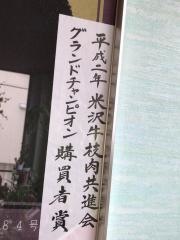 平成二年 米沢牛枝肉共進会
グランドチャンピオン 購買者賞
84号